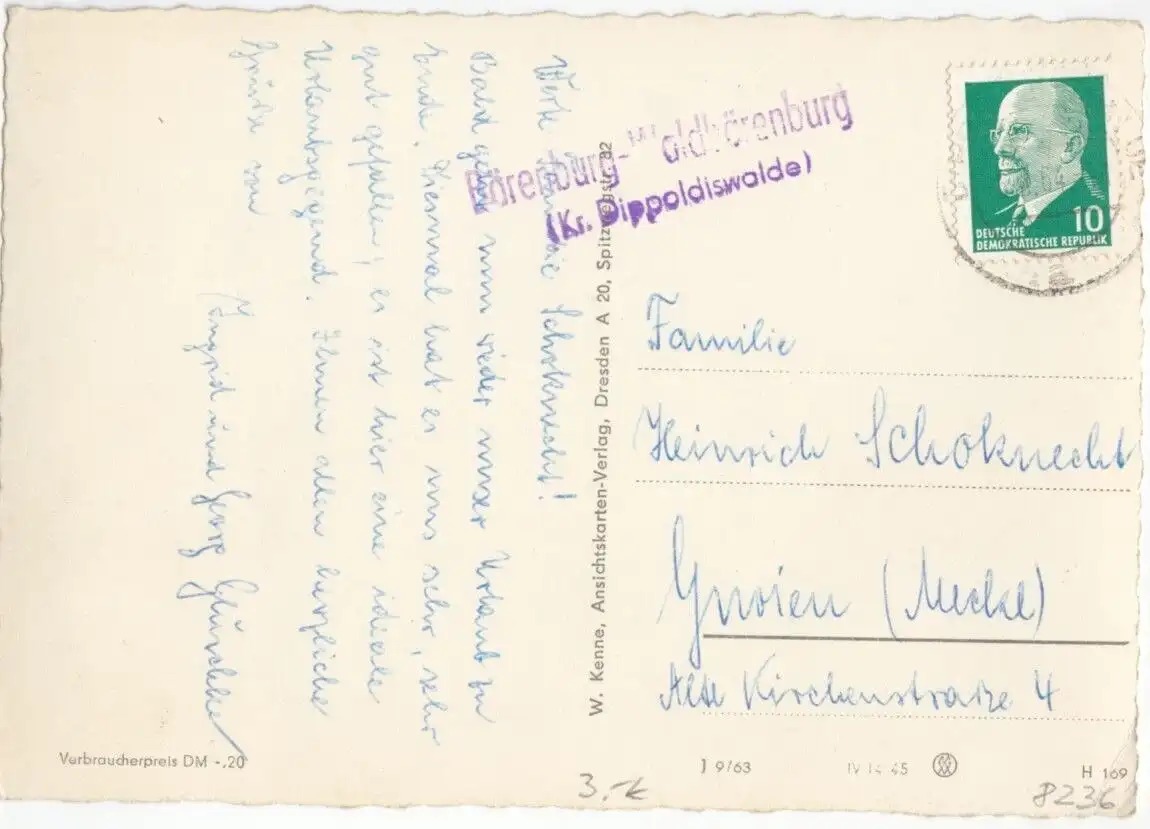 Werte Familie Schoknecht!
Bald geht nun wieder unser Urlaub zu
Ende. Diesmal hat es uns sehr, sehr
gut gefallen, es ist hier eine ideale
Urlaubsgegend. Ihnen allen herzliche
Grüße von
Ingrid und Georg
Bärenburg-Waldbärenburg
(Kr. Dippoldiswalde)
W. Kenne, Ansichtskarten-Verlag, Dresden A 20, Spitzwegstr. 82
10
DEUTSCHE
DEMOKRATISCHE REPUBLIK
Familie
Heinrich Schoknecht
Gnoien (Meckl)
Alte Kirchenstraße 4
Verbraucherpreis DM -,20
J 9/63
IV 14 45
H 169
3.-
8236